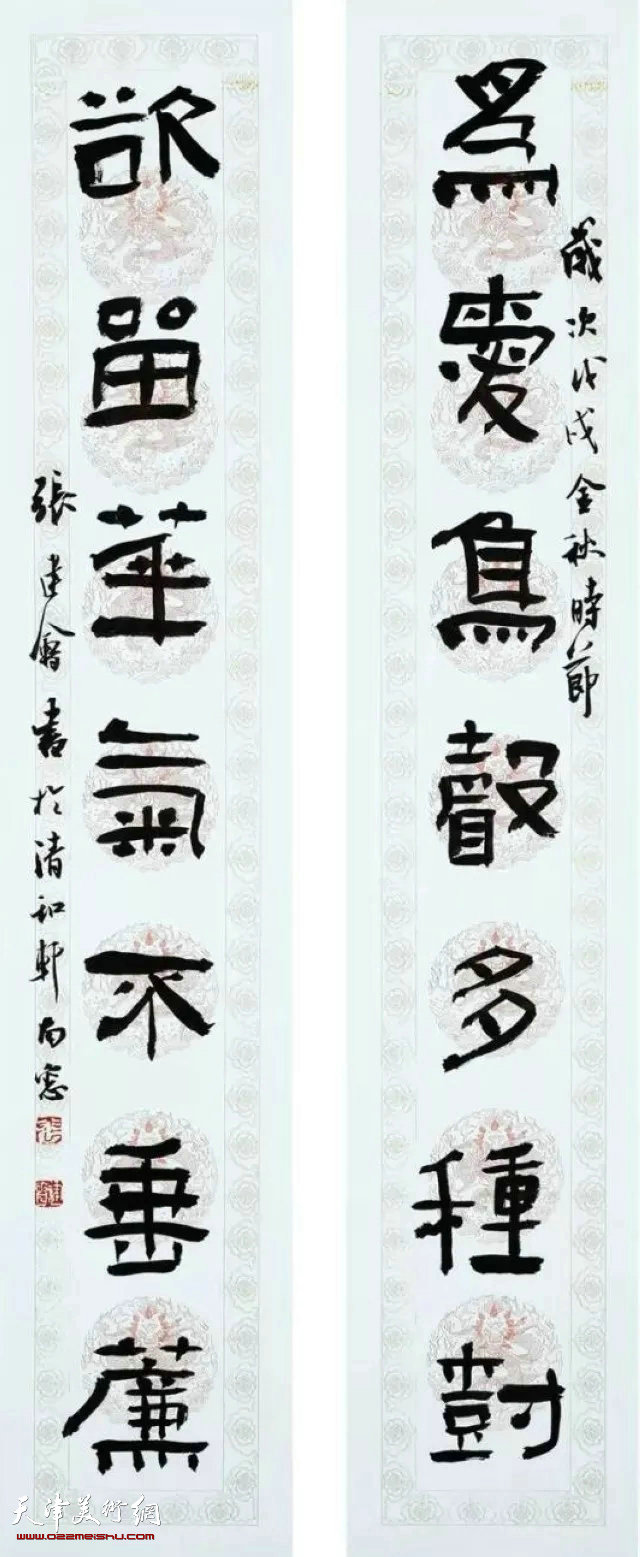 爲愛鳥聲多種尌
歲次戊戌金秋時節
欲留華氣不垂薕
張建會書於清和軒南窓
天津美術網
www.022meishu.com